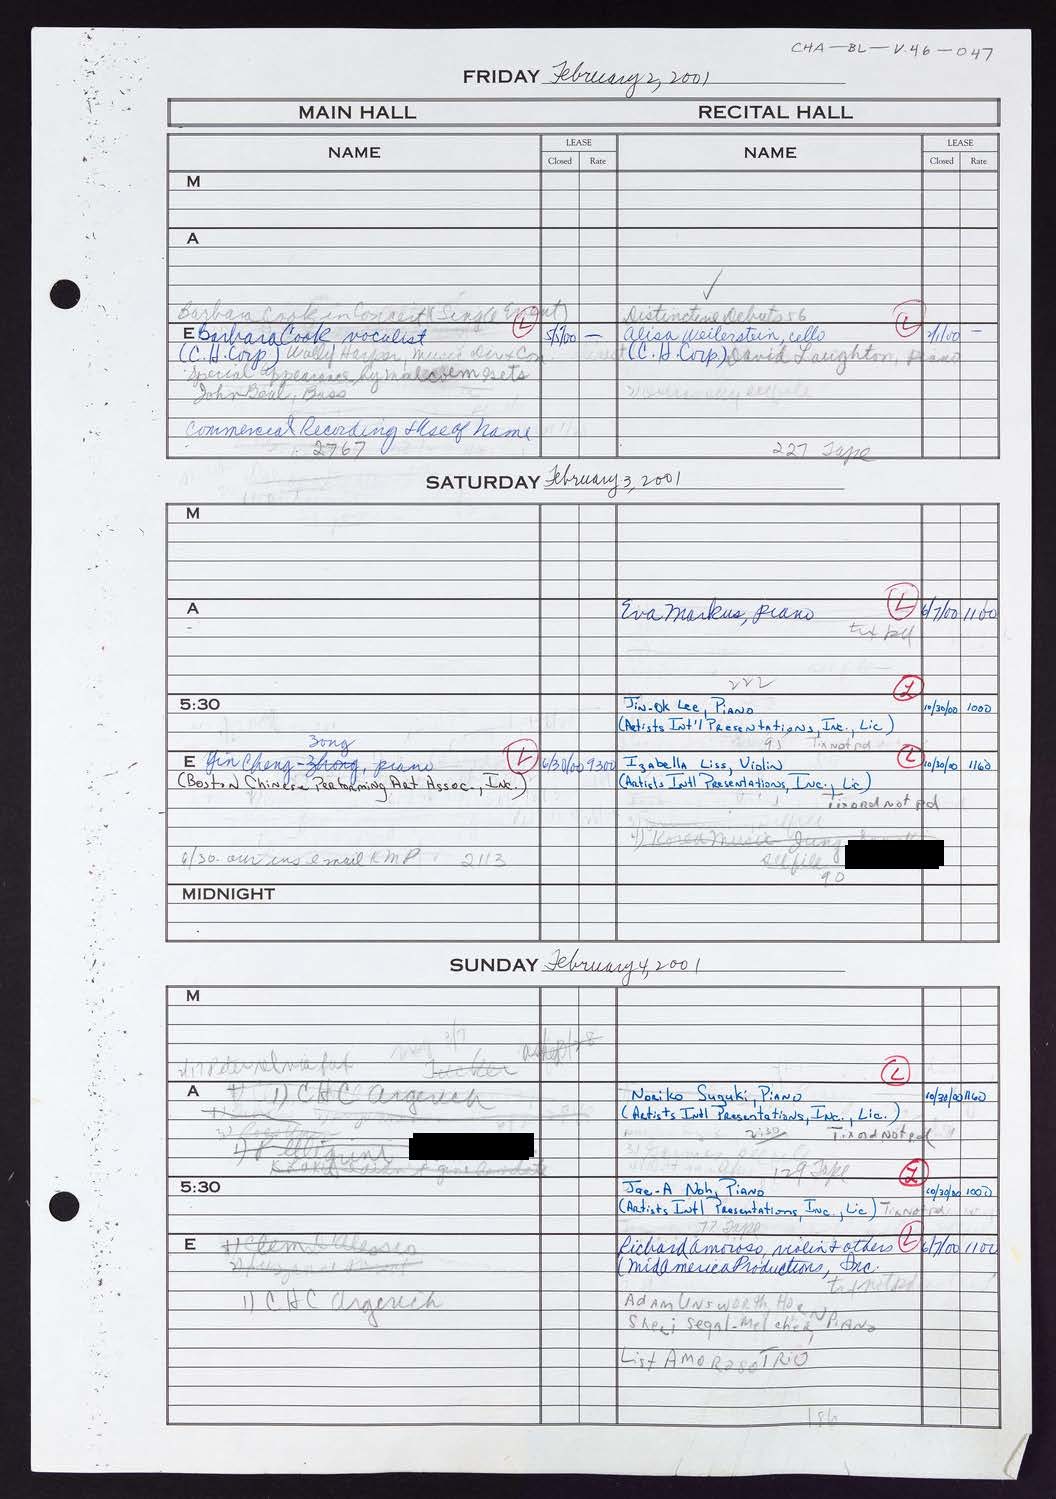 CHA-BL-V.46-047
FRIDAY February 2, 2001
MAIN HALL
RECITAL HALL
NAME
LEASE
Closed Rate
NAME
LEASE
Closed Rate
M
A
Barbara Cook in Concert (Single Event)
E Barbara Cook vocalist
L
5/5/00 —
(C.H. Corp) Wally Harper, Music Dir + Con
Special appearance by Malcolm Gets
John Beal, Bass
Commercial Recording & Use of Name
2767
Distinctive Debuts 56
Alisa Weilerstein, cello
L
2/1/00 —
(C.H. Corp) David Laughton, piano
227 Tape
SATURDAY February 3, 2001
M
A
Eva Markus, piano
L
6/7/00 1100
tix pd
222
5:30
Jin-Ok Lee, Piano
L
10/30/00 1000
(Artists Int'l Presentations, Inc., Lic)
93 Tix not pd
Zong
E Yin Cheng-Zhong, piano
L
6/30/00 9300
(Boston Chinese Performing Art Assoc., Inc.)
6/30. our ins email KMP 2113
Izabella Liss, Violin
L
10/30/00 1160
(Artists Intl Presentations, Inc., Lic)
Tix ord not pd
4) Korea Music Jung
90
MIDNIGHT
SUNDAY February 4, 2001
M
Tucker
A
1) CHC Argerich
4) Pellegrini
Noriko Suzuki, Piano
L
10/30/00 1160
(Artists Intl Presentations, Inc., Lic.)
Tix ord not pd
129 Tape
5:30
Jae-A Noh, Piano
L
10/30/00 1000
(Artists Intl Presentations, Inc., Lic) Tix Not pd
77 Tape
E
1) CHC Argerich
Richard Amoroso, violin & others
L
6/7/00 1100
(MidAmerica Productions, Inc.
tix not pd
Adam Unsworth, Horn
Sheri Segal-Melcher, Piano
List Amoroso Trio
186